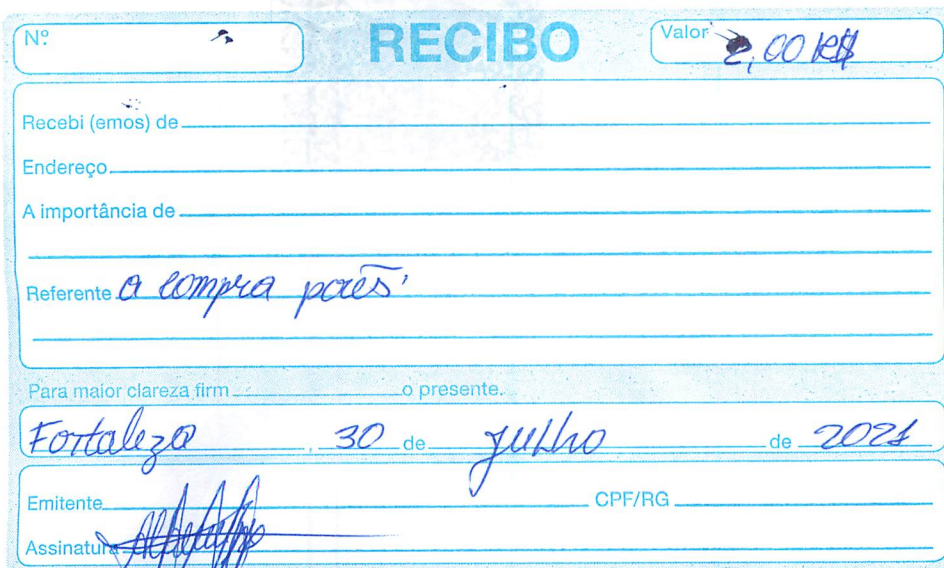 Nº RECIBO Valor 2,00 R$
Recebi (emos) de
Endereço
A importância de
Referente a compra pães
Para maior clareza firm o presente.
Fortaleza, 30 de julho de 2021
Emitente CPF/RG
Assinatura